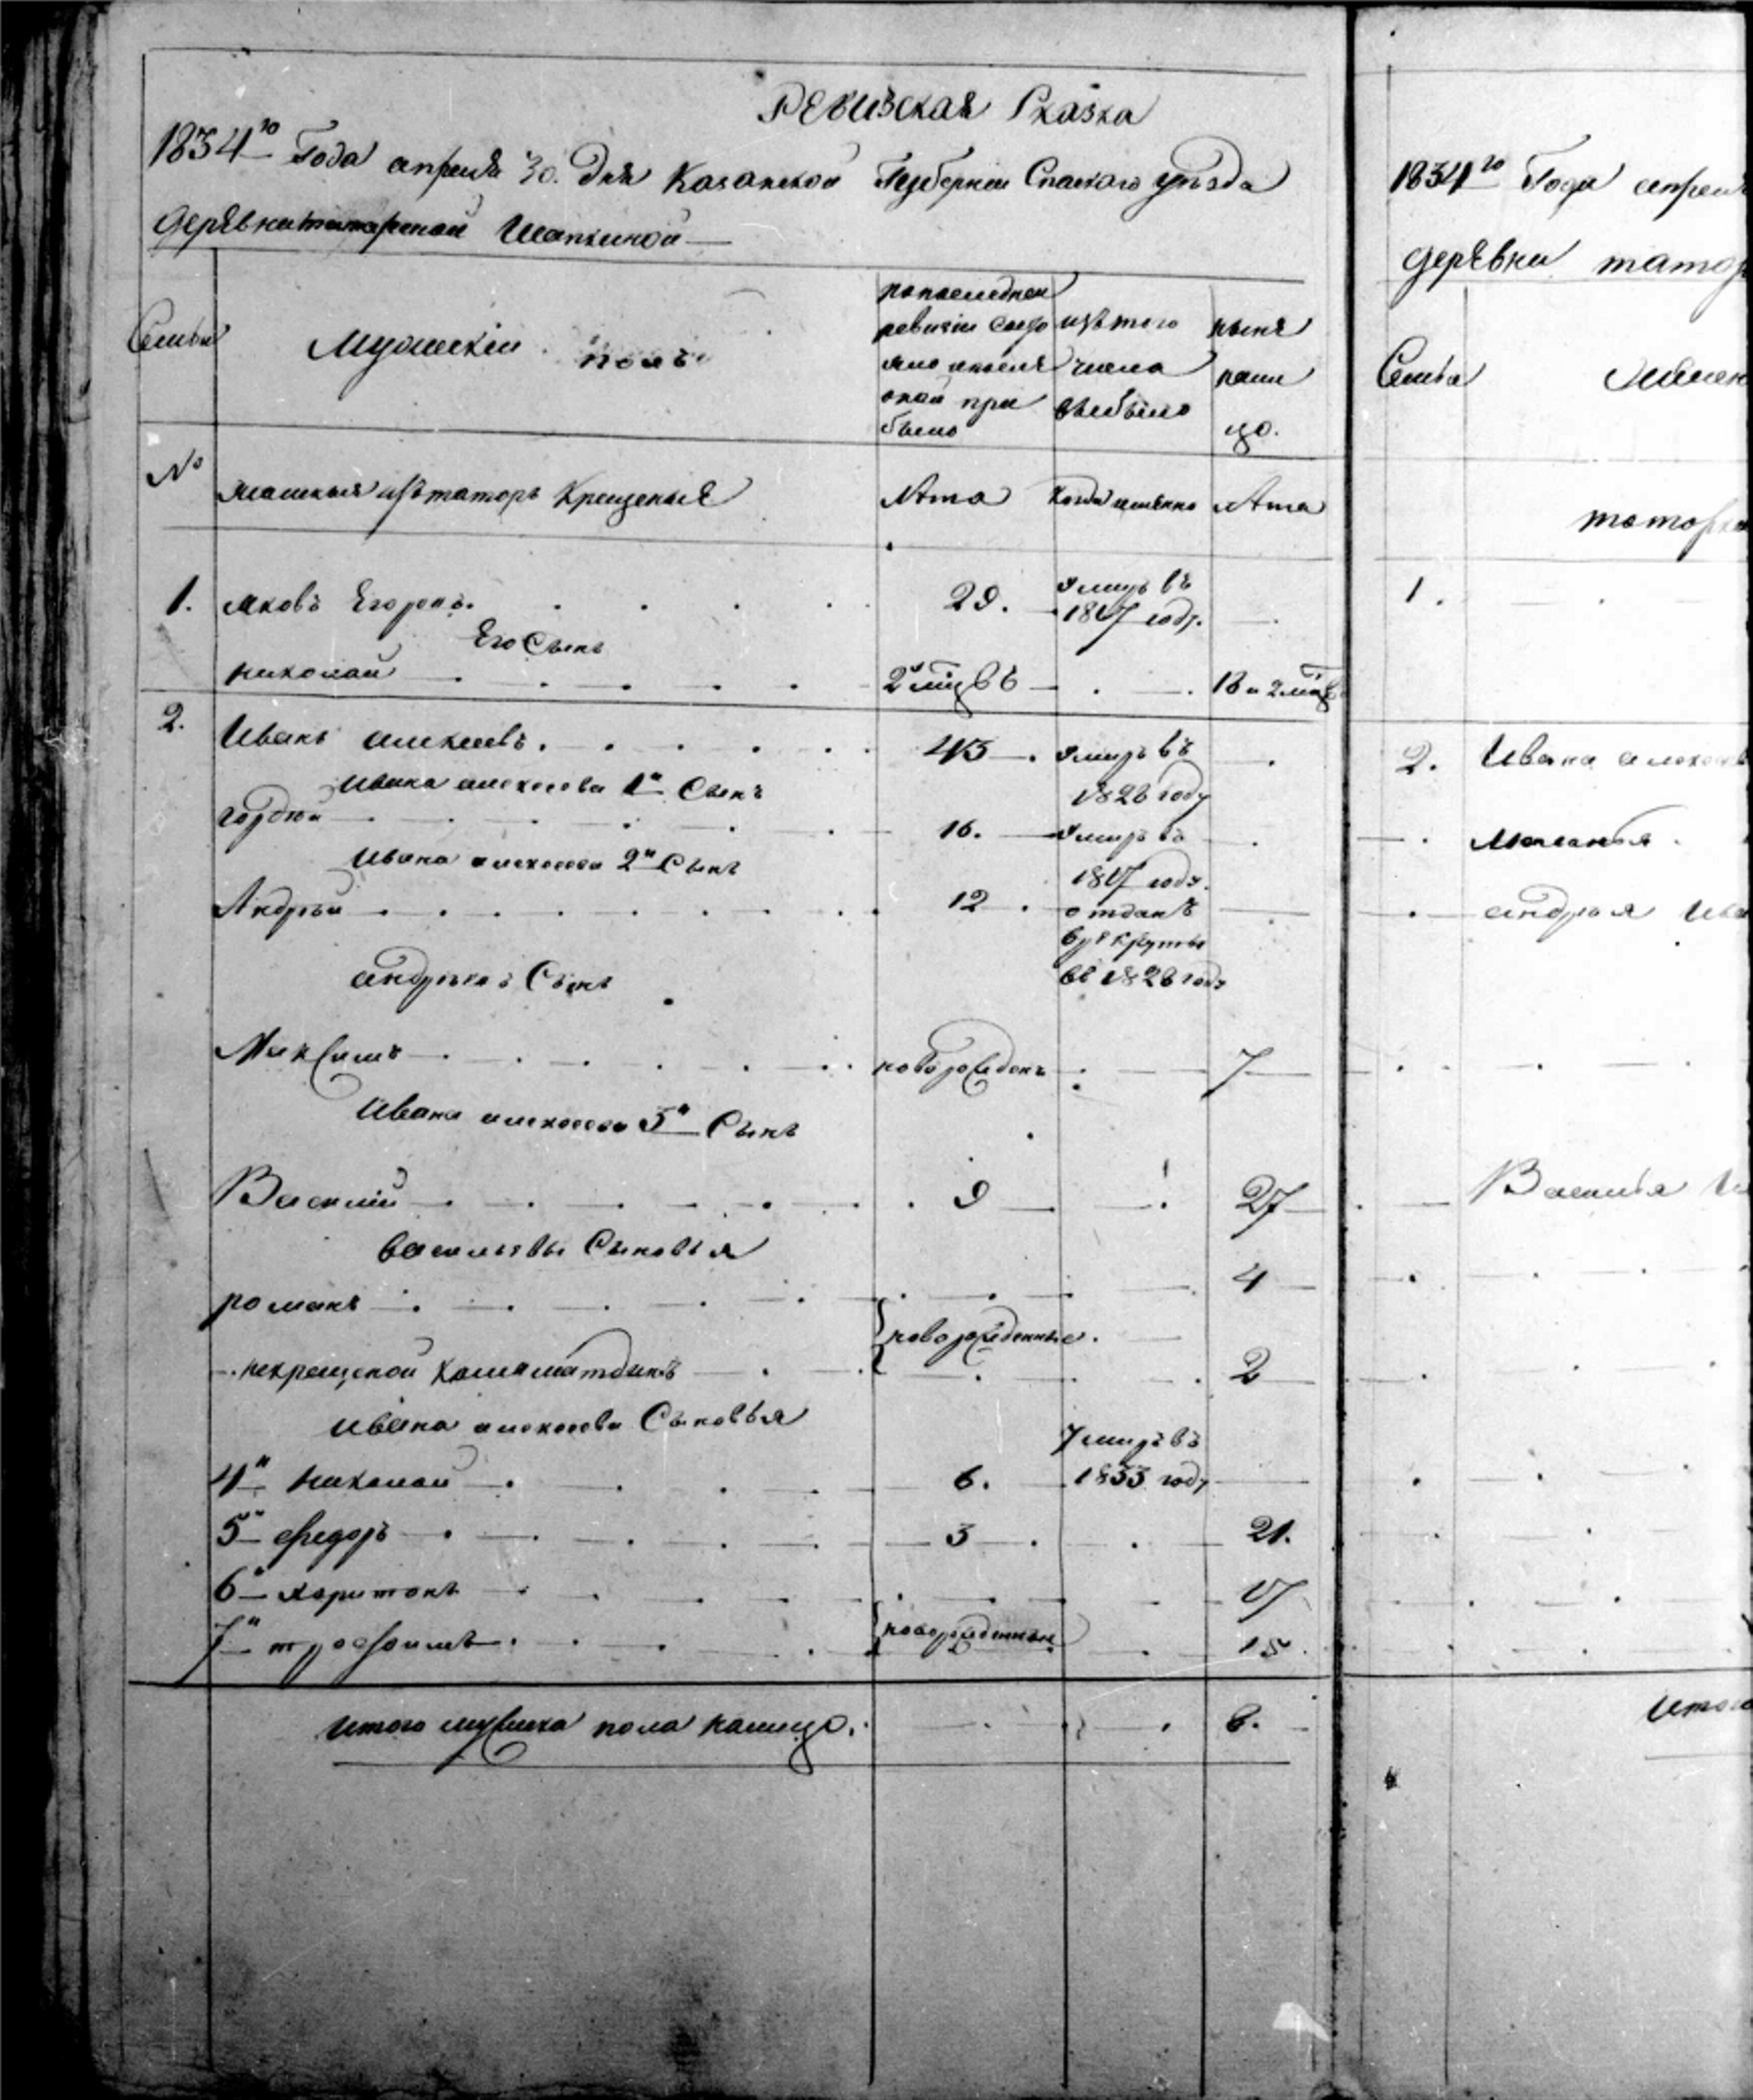 Ревизская Сказка
1834го Года апреля 30. дня Казанской Губернии Спаского уѣзда
деревни татарской Шапкиной
Семьи
Мужескiй полъ
по последней
ревизiи состо
яло и после
оной при
было
изъ того
числа
выбыло
ныне
на ли
цо.
№
ясашныя изъ татаръ Крещеные
Лѣта
когда именно
Лѣта
1. яковъ Егоровъ. 29. умиръ въ
1817 году.
Его Сынъ
николай 2 мцовъ 18 и 2 мца
2. Иванъ алексеевъ. 43 умиръ въ
1826 году
Ивана алексеева 1й Сынъ
гордей 16. умиръ въ
1817 году.
Ивана алексеева 2й Сынъ
Андрей 12 отданъ
в рекруты
въ 1826 году
андреевъ Сынъ
Максимъ новорожденъ 7
Ивана алексеева 3й Сынъ
Василiй 9 27
васильевы Сыновья
романъ 4
новорожденные.
некрещеной 2
ивана алексеева Сыновья
4й николай 6. умиръ въ
1833 году
5й федоръ 3 21.
6й харитонъ 17
новорожденныи
7й трофимъ 15
итого мужеска пола налицо. 8.
1834го Года апреля
деревни татар
Семьи
женск
татарки
1.
2. Ивана алексеев
Меланья
андрея Ива
Василья И
итого